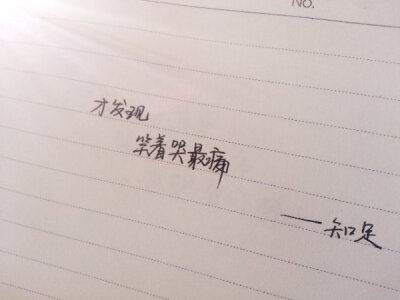 NO.
才发现
笑着哭最痛
——知足